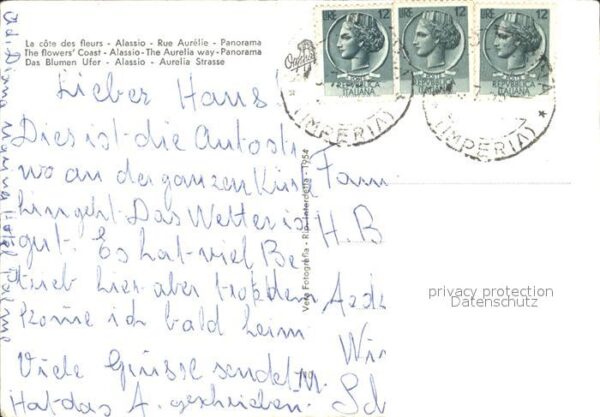 La côte des fleurs - Alassio - Rue Aurélie - Panorama
The flowers' Coast - Alassio - The Aurelia way - Panorama
Das Blumen Ufer - Alassio - Aurelia Strasse
LIRE 12
REPUBBLICA
ITALIANA
LIRE 12
REPUBBLICA
ITALIANA
LIRE 12
REPUBBLICA
ITALIANA
(IMPERIA)
(IMPERIA)
Lieber Hans!
Dies ist die Autostr
wo an der ganzen Küs
hingeht. Das Wetter ist
gut. Es hat viel Be
trieb hier aber trotzdem
komme ich bald heim
Viele Grüsse sendet M.
Hat das A. geschrieben.
Fam
H. B
Wi
Sch
Vera Fotografia - Rip. Interdetta - 1954
privacy protection
Datenschutz